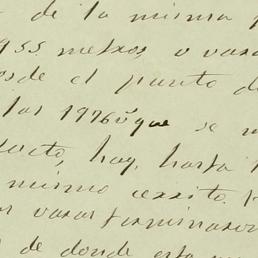 de la misma
955 metros, o varas
desde el punto de
las 1976 que se
ducto, hay, hasta
mismo cerrito.
varas terminaron
de donde esta